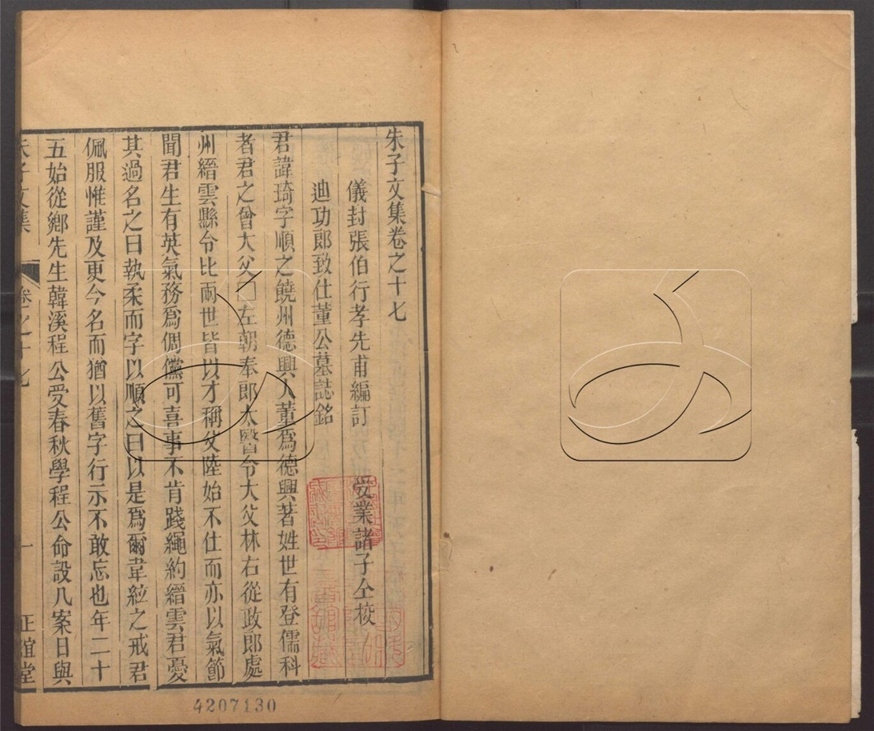 朱子文集卷之十七
儀封張伯行孝先甫編訂 受業諸子仝校
迪功郎致仕董公墓誌銘
君諱琦字順之饒州德興人董爲德興著姓世有登儒科
者君之曾大父□左朝奉郎太醫令大父林右從政郎處
州縉雲縣令比兩世皆以才稱父陸始不仕而亦以氣節
聞君生有英氣務爲倜儻可喜事不肯踐繩約縉雲君憂
其過名之曰執柔而字以順之曰以是爲爾韋紱之戒君
佩服惟謹及更今名而猶以舊字行示不敢忘也年二十
五始從鄉先生韓溪程公受春秋學程公命設几案日與
朱子文集 卷之十七 一 正誼堂
4207130